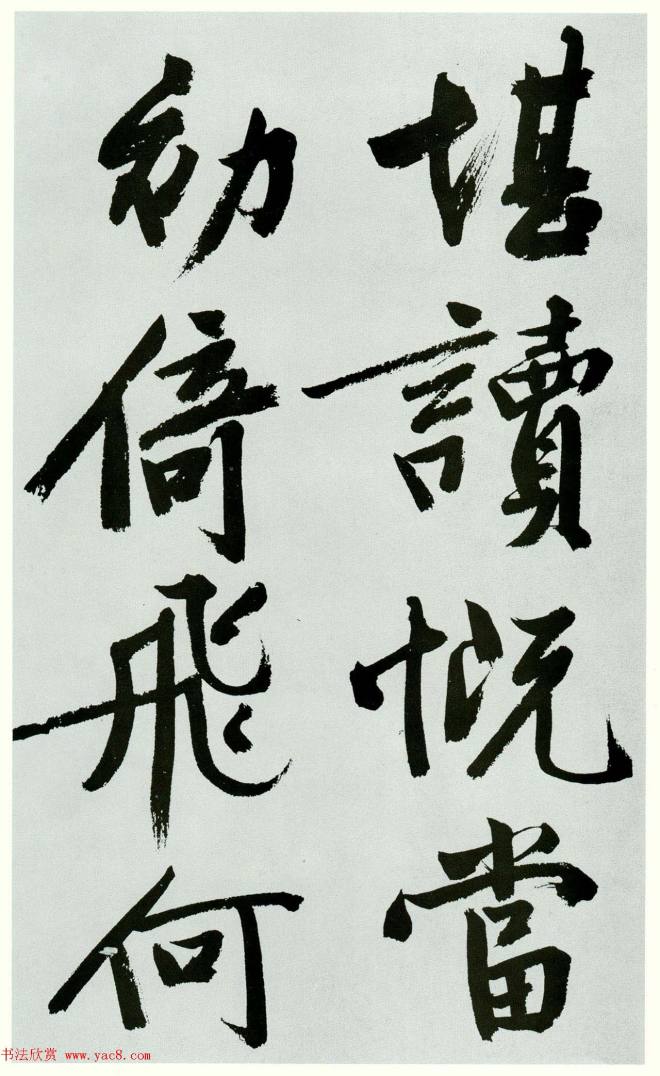 堪讀慨當
初倚飛何
书法欣赏 www.yac8.com